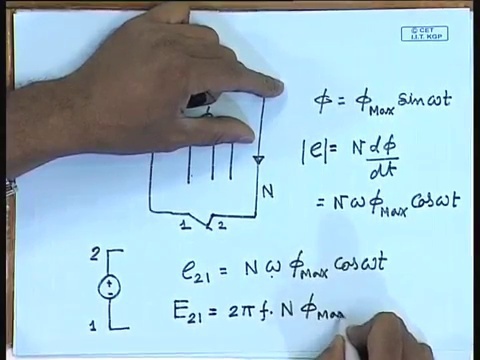 © CET
I.I.T. KGP
φ = φMax sinωt
|e| = N dφ/dt
N
= N ω φMax cosωt
1 2
2
e21 = N ω φMax cosωt
+
-
1
E21 = 2π f. N φMax